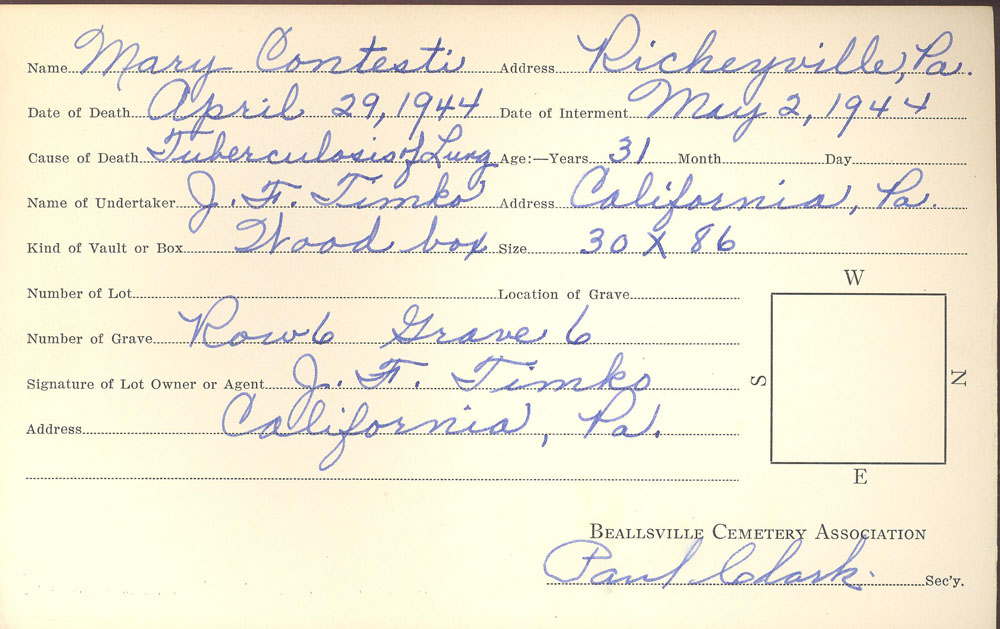 Name Mary Contesti Address Richeyville, Pa.
Date of Death April 29, 1944 Date of Interment May 2, 1944
Cause of Death Tuberculosis of Lung Age:—Years 31 Month Day
Name of Undertaker J. F. Timko Address California, Pa.
Kind of Vault or Box Wood box Size 30 X 86
Number of Lot Location of Grave
Number of Grave Row 6 Grave 6
Signature of Lot Owner or Agent J. F. Timko
Address California, Pa.
W
S
N
E
BEALLSVILLE CEMETERY ASSOCIATION
Paul Clark. Sec'y.